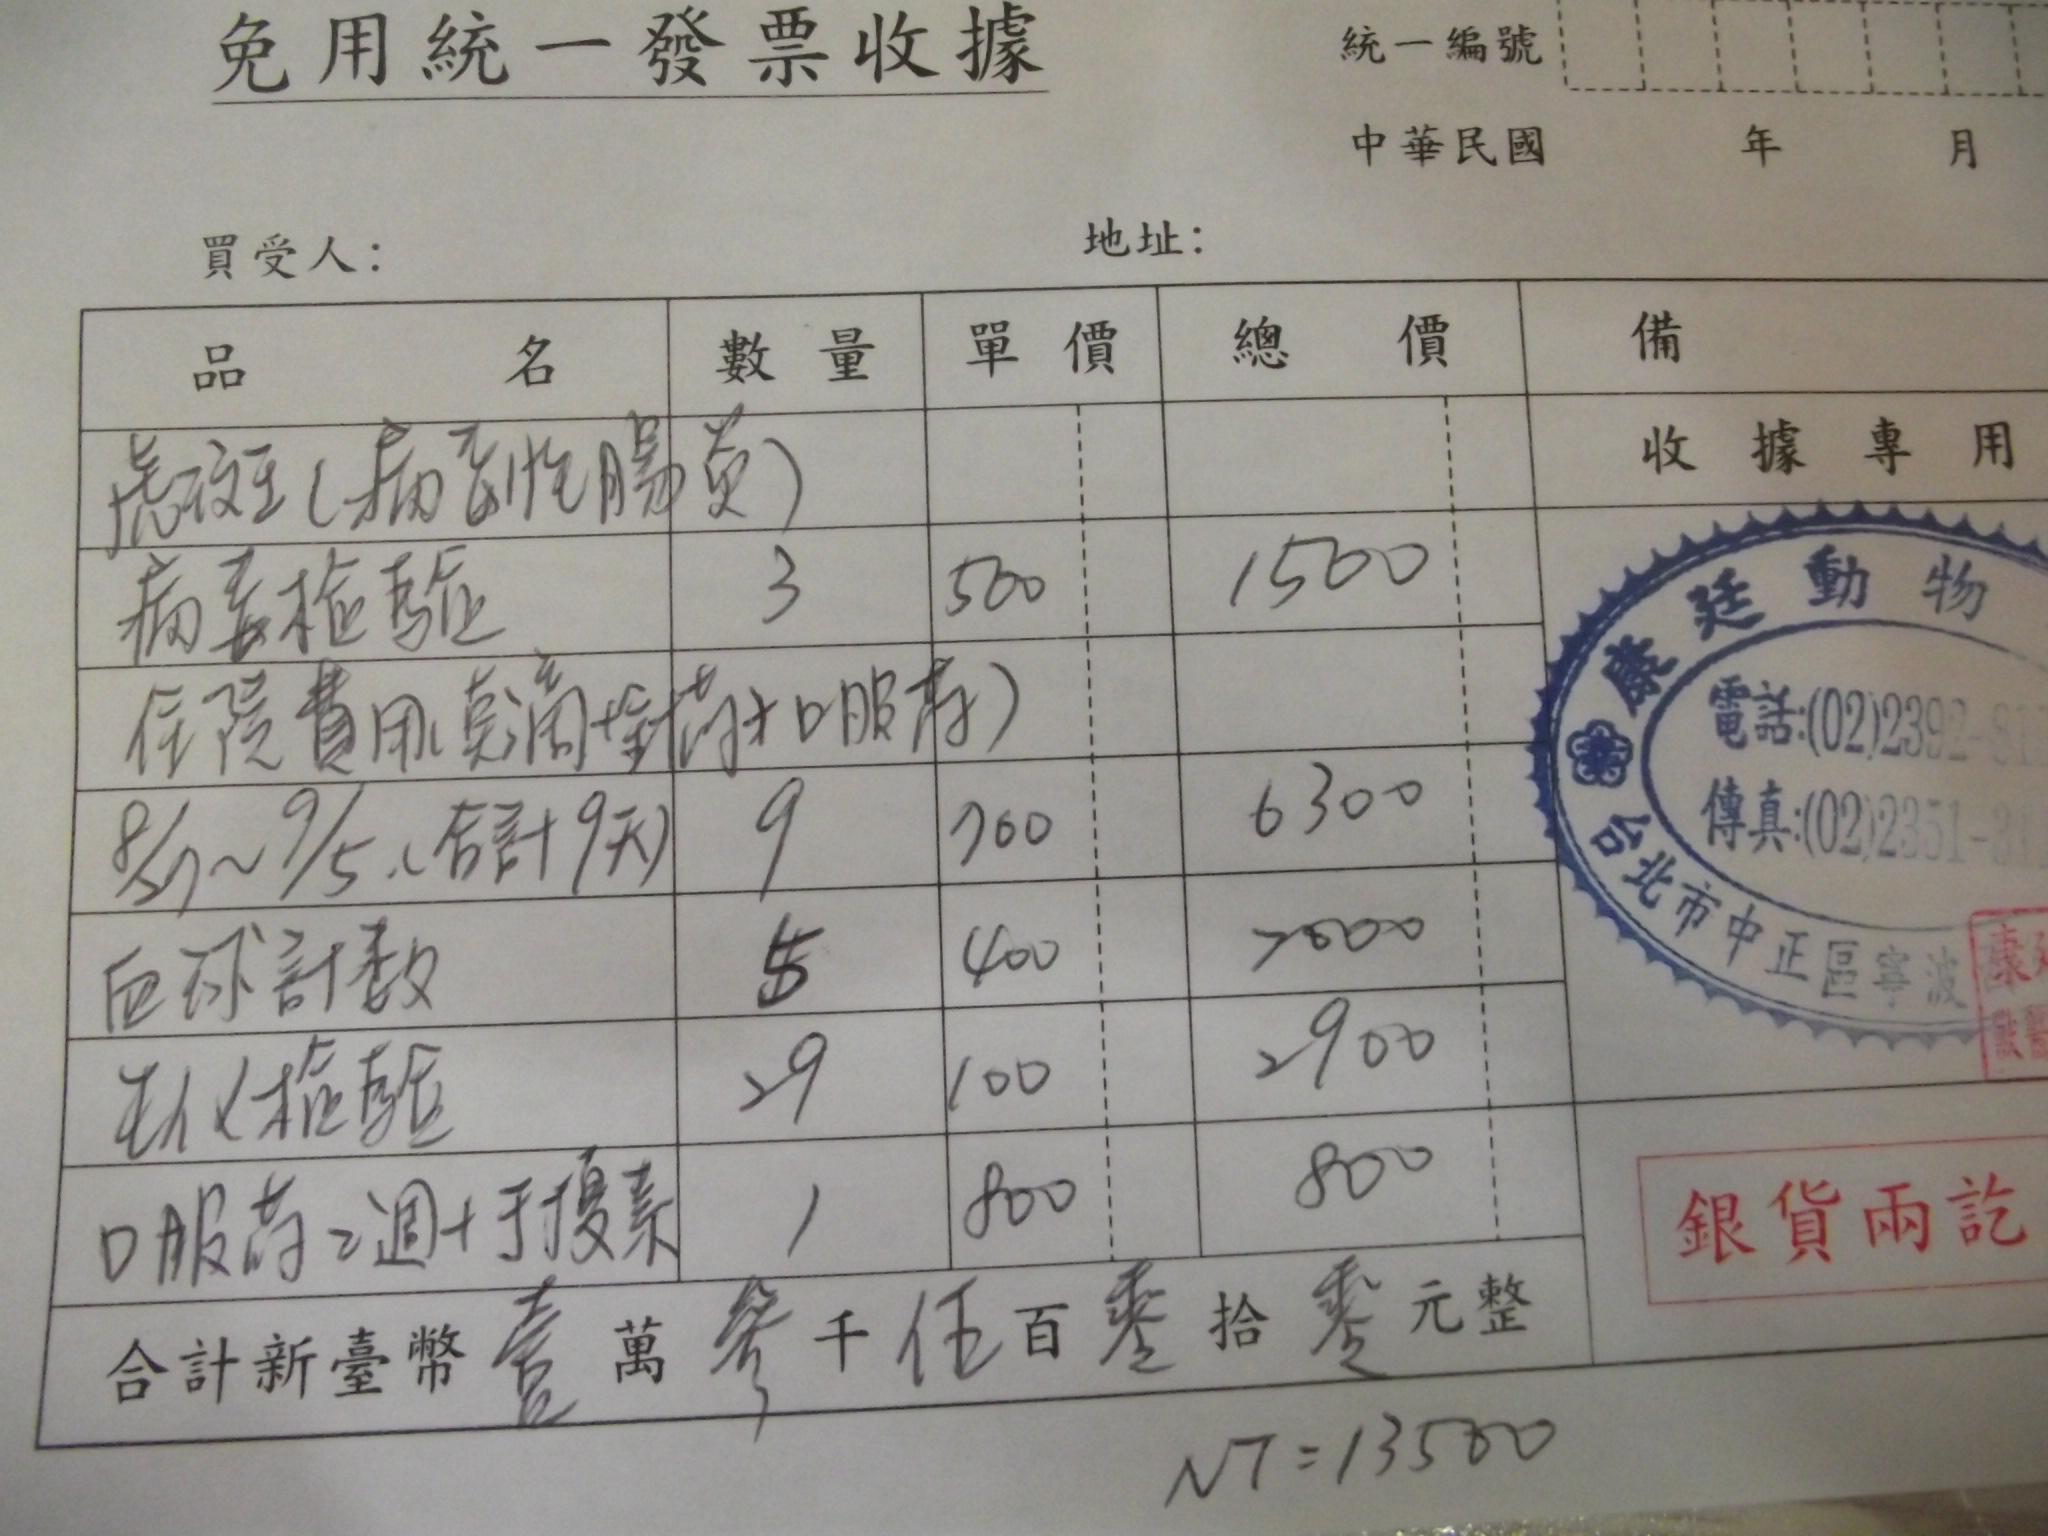 免用統一發票收據
統一編號
中華民國 年 月
買受人: 地址:
品名 數量 單價 總價 備
虎斑(病毒性腸炎)
收據專用
病毒檢驗 3 500 1500
住院費用(點滴+針葯+口服葯)
8/27~9/5.(合計9天) 9 700 6300
血球計數 5 400 2000
生化檢驗 29 100 2900
口服葯2週+干擾素 1 800 800
合計新臺幣壹萬參千伍百零拾零元整
NT=13500
康廷動物
電話:(02)2392-81
傳真:(02)2351-81
台北市中正區寧波
康廷
獸醫
銀貨兩訖